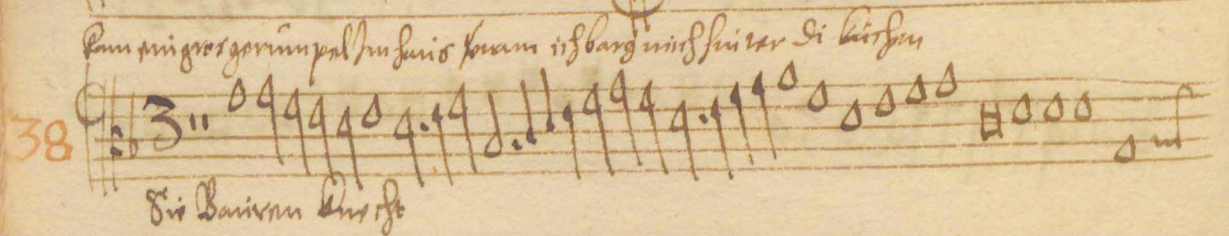 kam ein gros gerümpel Im haus kam ich barg mich hinter di küchen
38
3
Die Bauren knecht